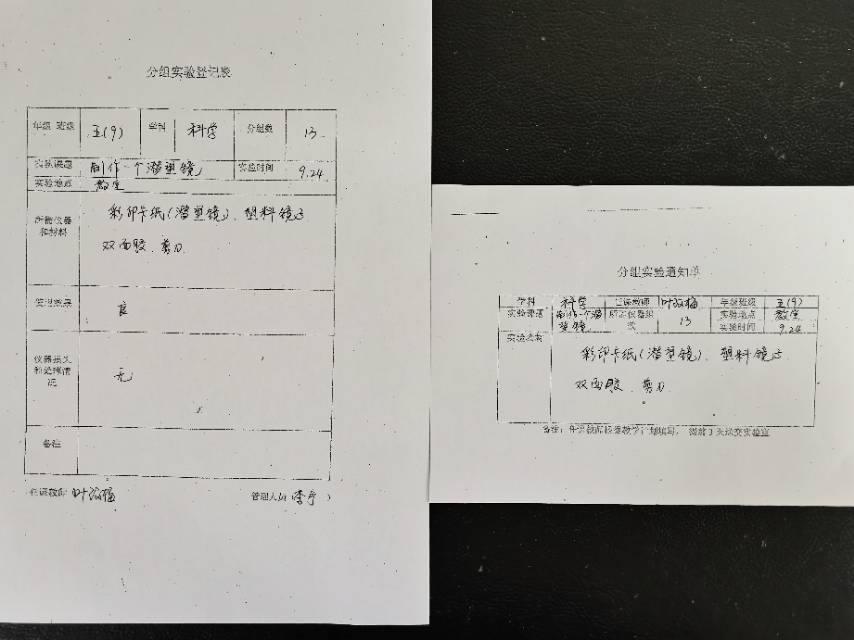 分组实验登记表
年级 班级 五(9) 学科 科学 分组数 13
实验课题 制作一个潜望镜 实验时间 9.24
实验地点 教室
所需仪器和材料 彩印卡纸(潜望镜)、塑料镜子
双面胶、剪刀
实验效果 良
仪器损失和处理情况 无
备注
任课教师 管理人员(李 )
分组实验通知单
学科 科学 任课教师 年级班级 五(9)
实验课题 制作一个潜望镜 所需仪器组数 13 实验地点 教室
实验时间 9.24
彩印卡纸(潜望镜)、塑料镜子
双面胶、剪刀
备注:任课教师按教学计划填写,提前1天送交实验室